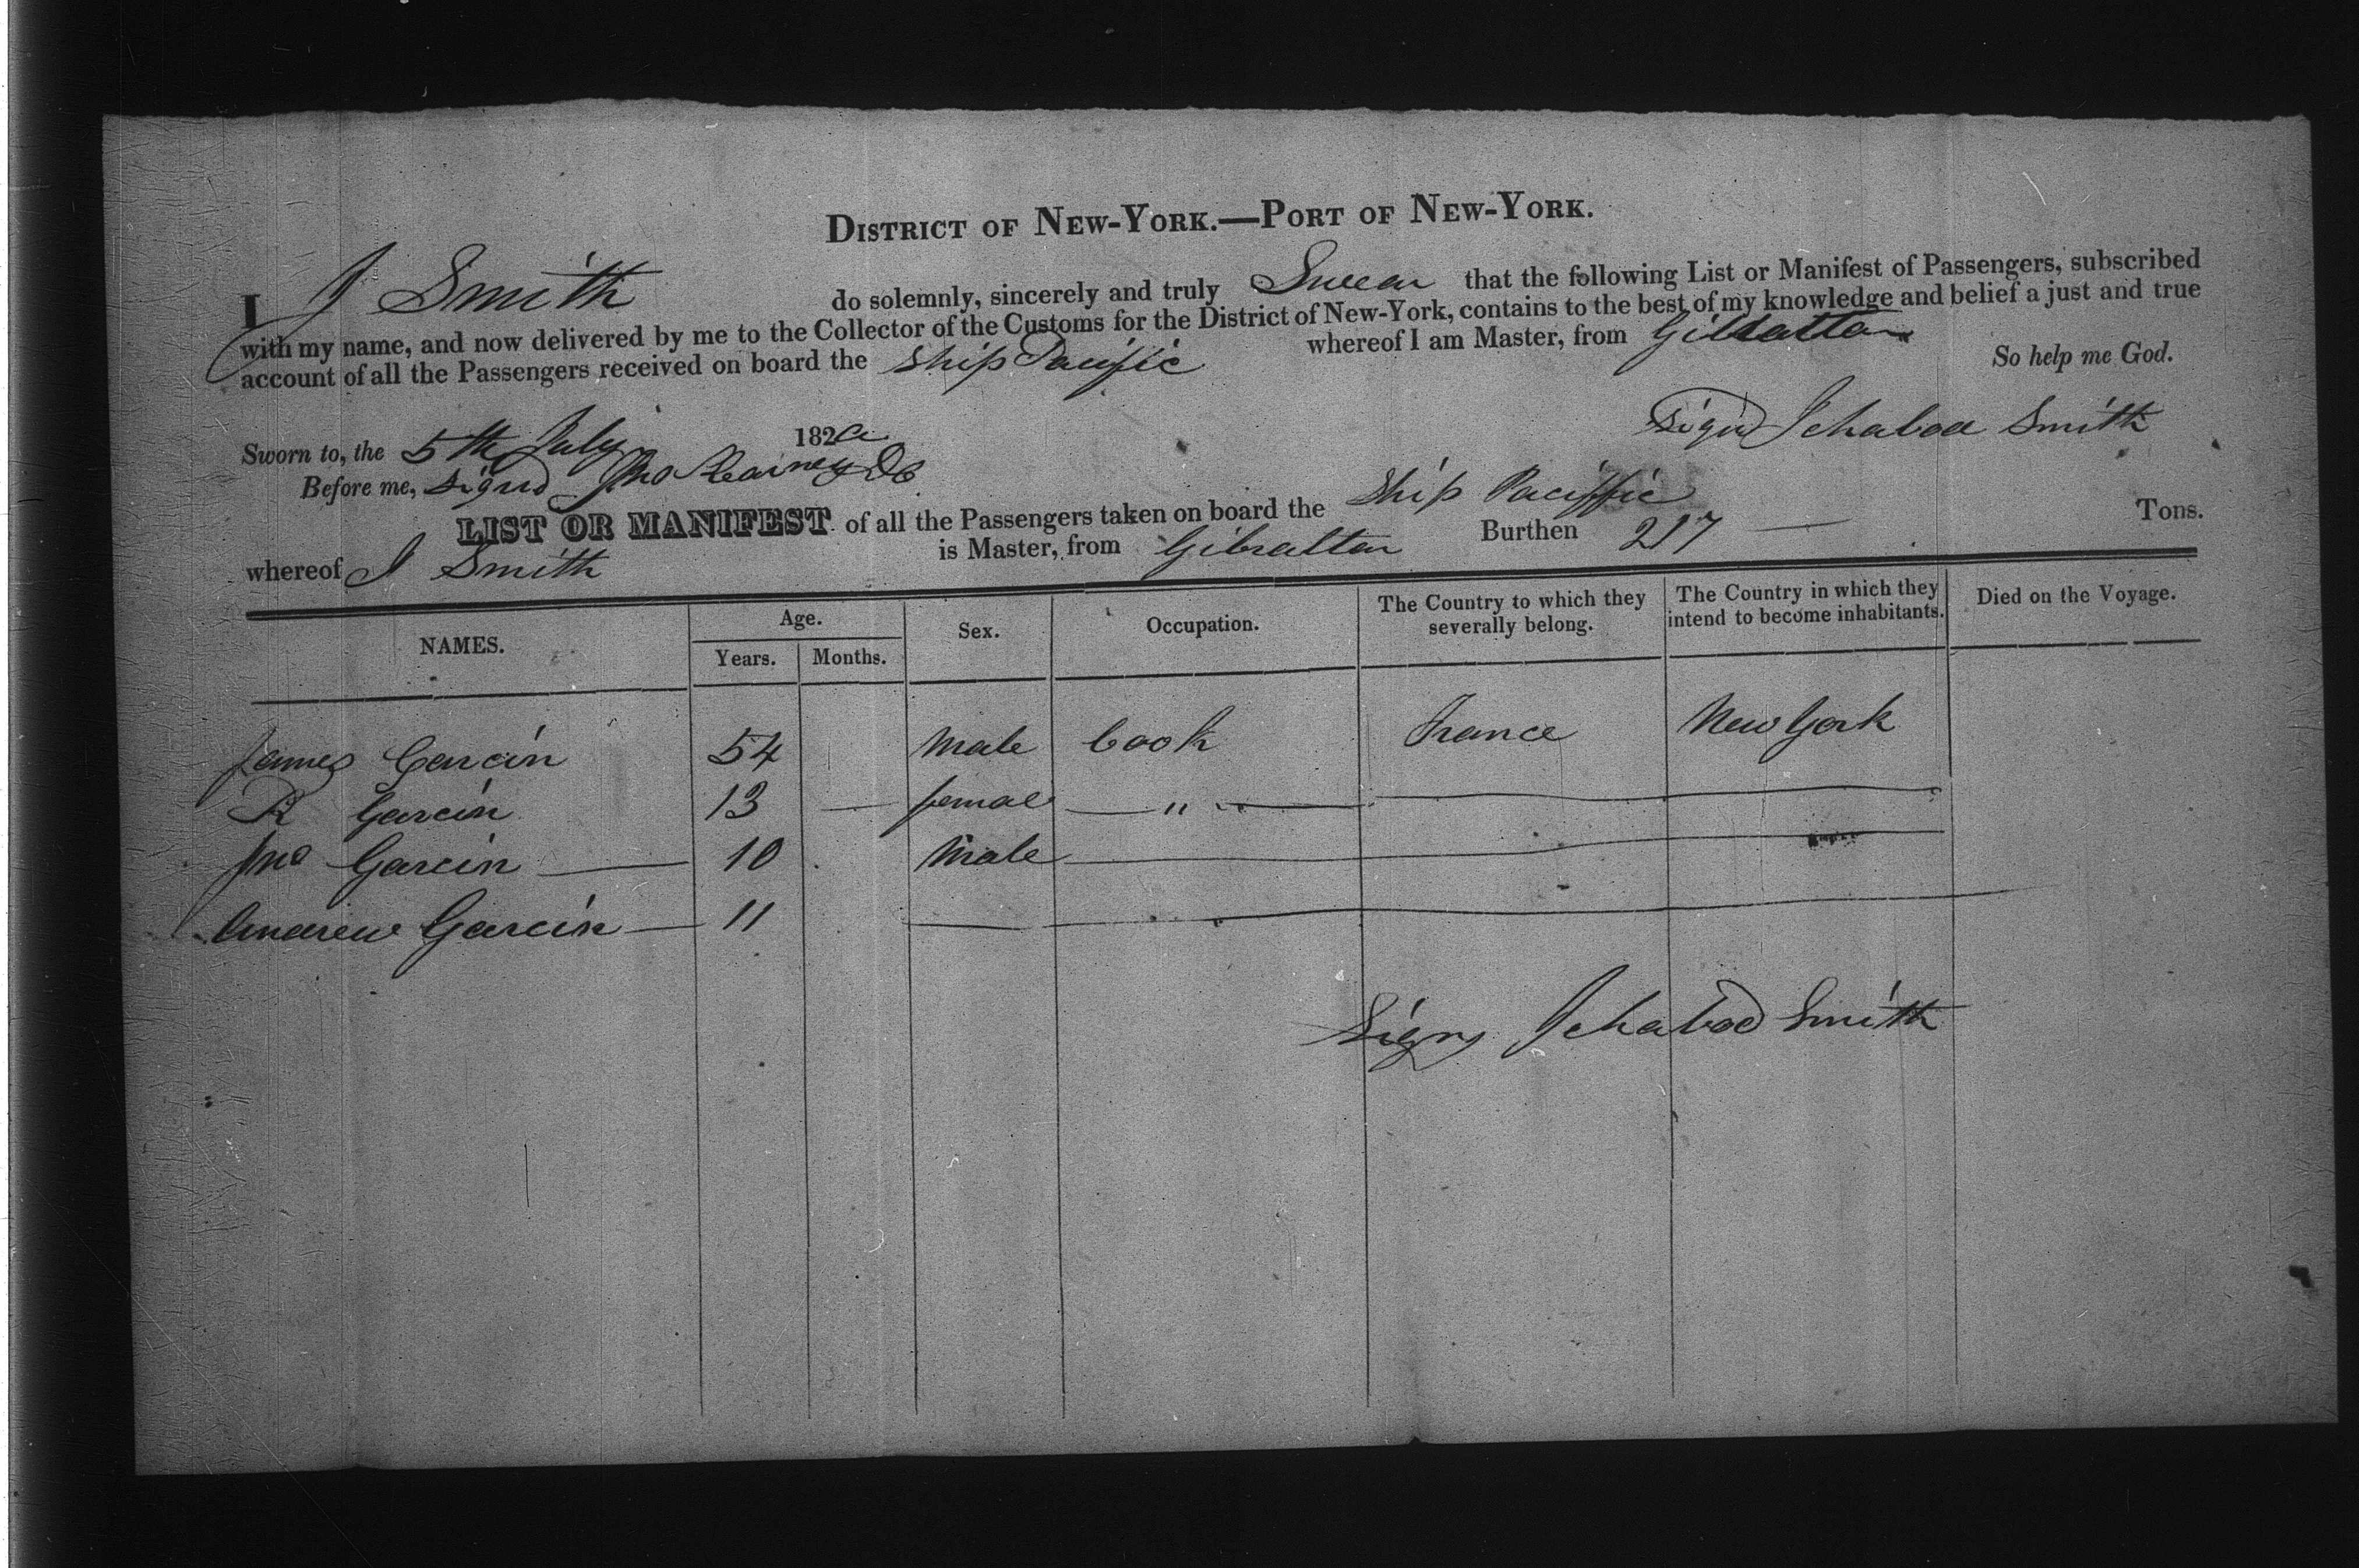 DISTRICT OF NEW-YORK.—PORT OF NEW-YORK.
I J Smith do solemnly, sincerely and truly Swear that the following List or Manifest of Passengers, subscribed
with my name, and now delivered by me to the Collector of the Customs for the District of New-York, contains to the best of my knowledge and belief a just and true
account of all the Passengers received on board the Ship Pacific whereof I am Master, from Gibralter
So help me God.
Sworn to, the 5th July 182
Signd Ichabod Smith
Before me, Signd Jno Kearney DC
LIST OR MANIFEST of all the Passengers taken on board the Ship Paciffic
whereof J Smith is Master, from Gibralter Burthen 217 Tons.
NAMES. Age. Sex. Occupation. The Country to which they severally belong. The Country in which they intend to become inhabitants. Died on the Voyage.
Years. Months.
James Garcin 54 Male Cook France New York
R Garcin 13 — female — " —
Jno Garcin — 10 Male —
Andrew Garcin — 11 —
Sign Ichabod Smith